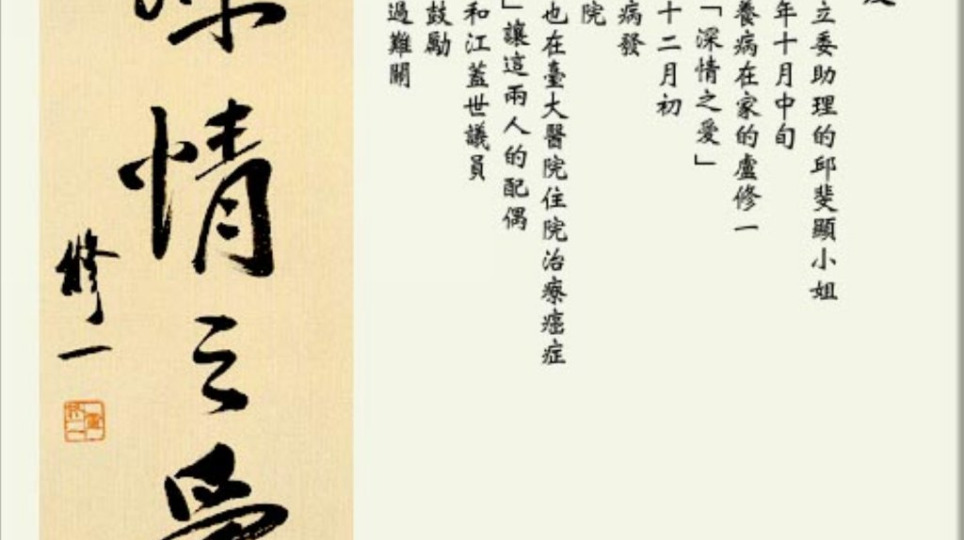 立委助理的邱斐顯小姐
年十月中旬
養病在家的盧修一
「深情之愛」
十二月初
病發
院
也在臺大醫院住院治療癌症
」讓這兩人的配偶
和江蓋世議員
鼓勵
過難關
情之愛
修一